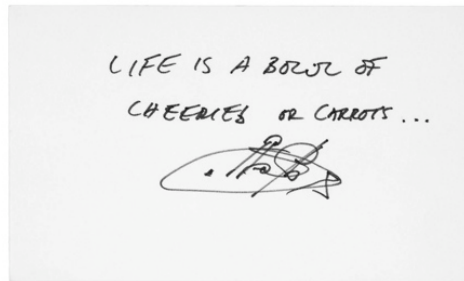 LIFE IS A BOWL OF
CHEERIES OR CARROTS...